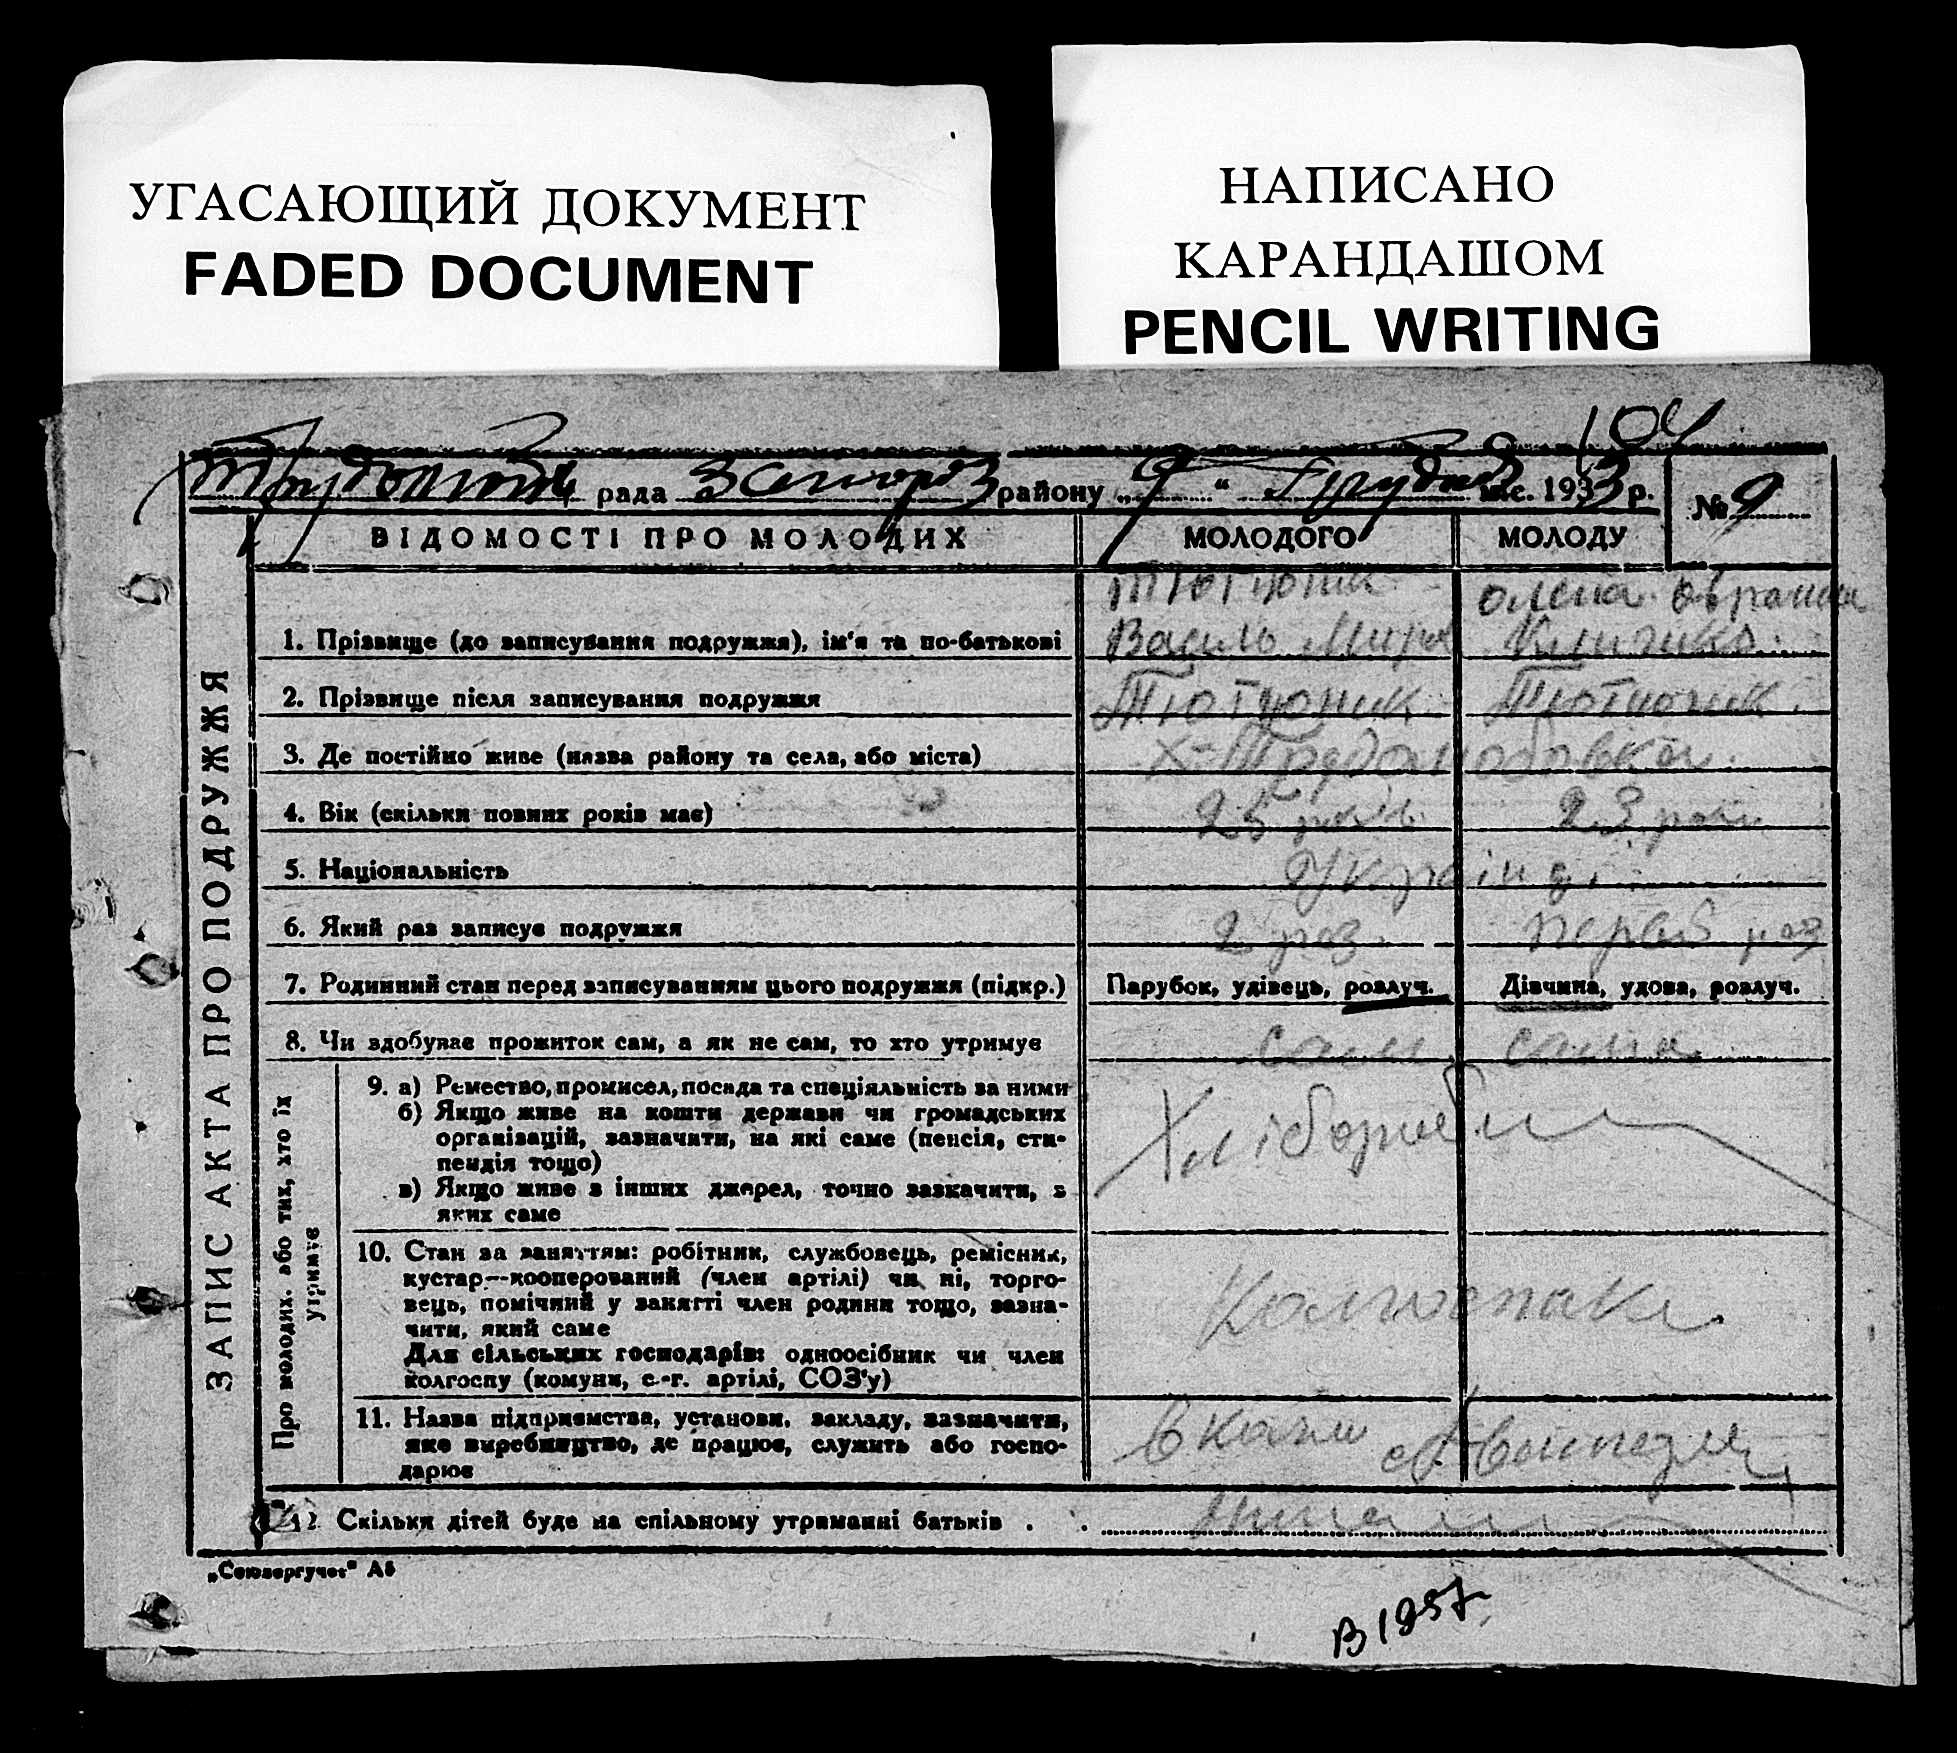 УГАСАЮЩИЙ ДОКУМЕНТ
FADED DOCUMENT
НАПИСАНО
КАРАНДАШОМ
PENCIL WRITING
104
рада Запоріз району „ 9 “ Грудня міс. 1933 р.
№ 9
ЗАПИС АКТА ПРО ПОДРУЖЖЯ
ВІДОМОСТІ ПРО МОЛОДИХ МОЛОДОГО МОЛОДУ
Тютюник Олена
1. Прізвище (до записування подружжя), ім'я та по-батькові Василь Мирон
2. Прізвище після записування подружжя Тютюник Тютюник
3. Де постійно живе (назва району та села, або міста) Х-Трудолюбовка
4. Вік (скільки повних років має) 25 років 23 роки
5. Національність Українці
6. Який раз записує подружжя 2 раз перший раз
7. Родинний стан перед записуванням цього подружжя (підкр.) Парубок, удівець, розлуч. Дівчина, удова, розлуч.
8. Чи здобуває прожиток сам, а як не сам, то хто утримує сам сама
Про молодих. або тих, хто їх
утримує
9. а) Ремество, промисел, посада та спеціяльність за ними
б) Якщо живе на кошти держави чи громадських
організацій, зазначити, на які саме (пенсія, сти-
пендія тощо)
в) Якщо живе з інших джерел, точно зазначити, з
яких саме
Хлібороби
10. Стан за заняттям: робітник, службовець, ремісник,
кустар—кооперований (член артілі) чи ні, торго-
вець, помічний у занятті член родини тощо, зазна-
чити, який саме
Для сільських господарів: одноосібник чи член
колгоспу (комуни, с.-г. артілі, СОЗ'у)
Колгоспники
11. Назва підприємства, установи, закладу, зазначити,
яке виробництво, де працює, служить або госпо-
дарює
12 Скільки дітей буде на спільному утриманні батьків . .
„Союзоргучет" А5
В 1957